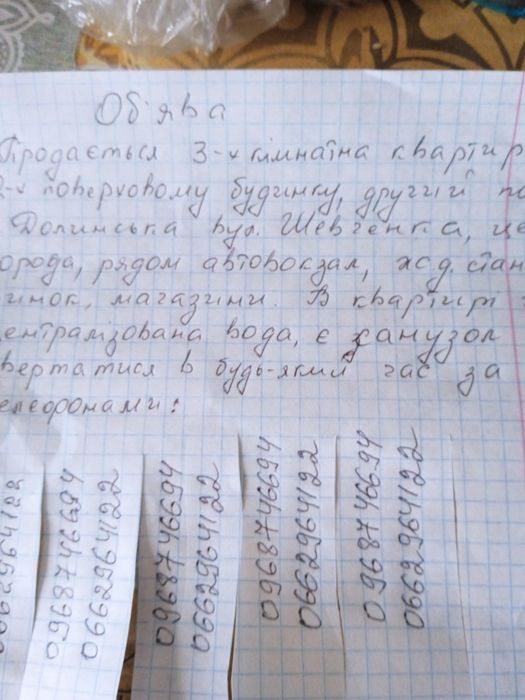 Об'ява
Продається 3-х кімнатна квартир
2-х поверховому будинку, другий по
Долинська вул. Шевченка, це
орода, рядом автовокзал, ж.д. стан
инок, магазини. В квартирі
централізована вода, є санузол
вертатися в будь-який час за
елефонами:
0662964122
0968746694
0662964122
0968746694
0662964122
0968746694
0662964122
0968746694
0662964122